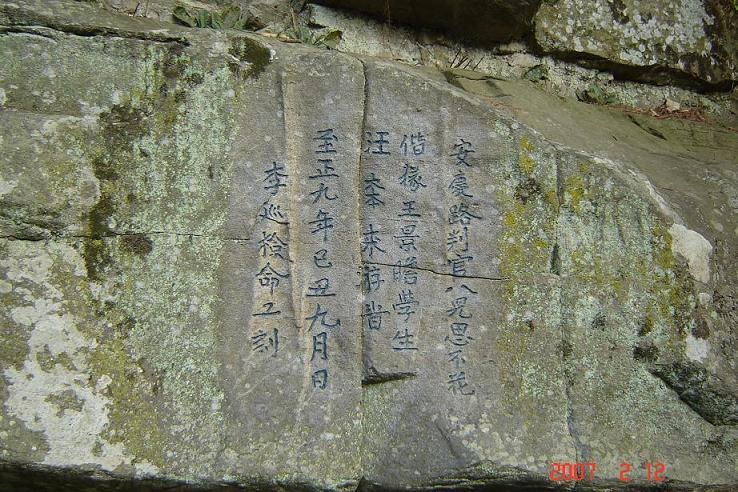 安慶路判官八兒思不花
偕掾王景瞻學生
汪本來游旹
至正九年己丑九月日
李巡檢命工刻
2007 2 12